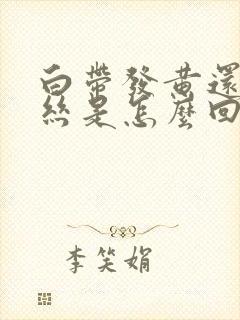 白帶發黃還
絲是怎麼回
李笑娟